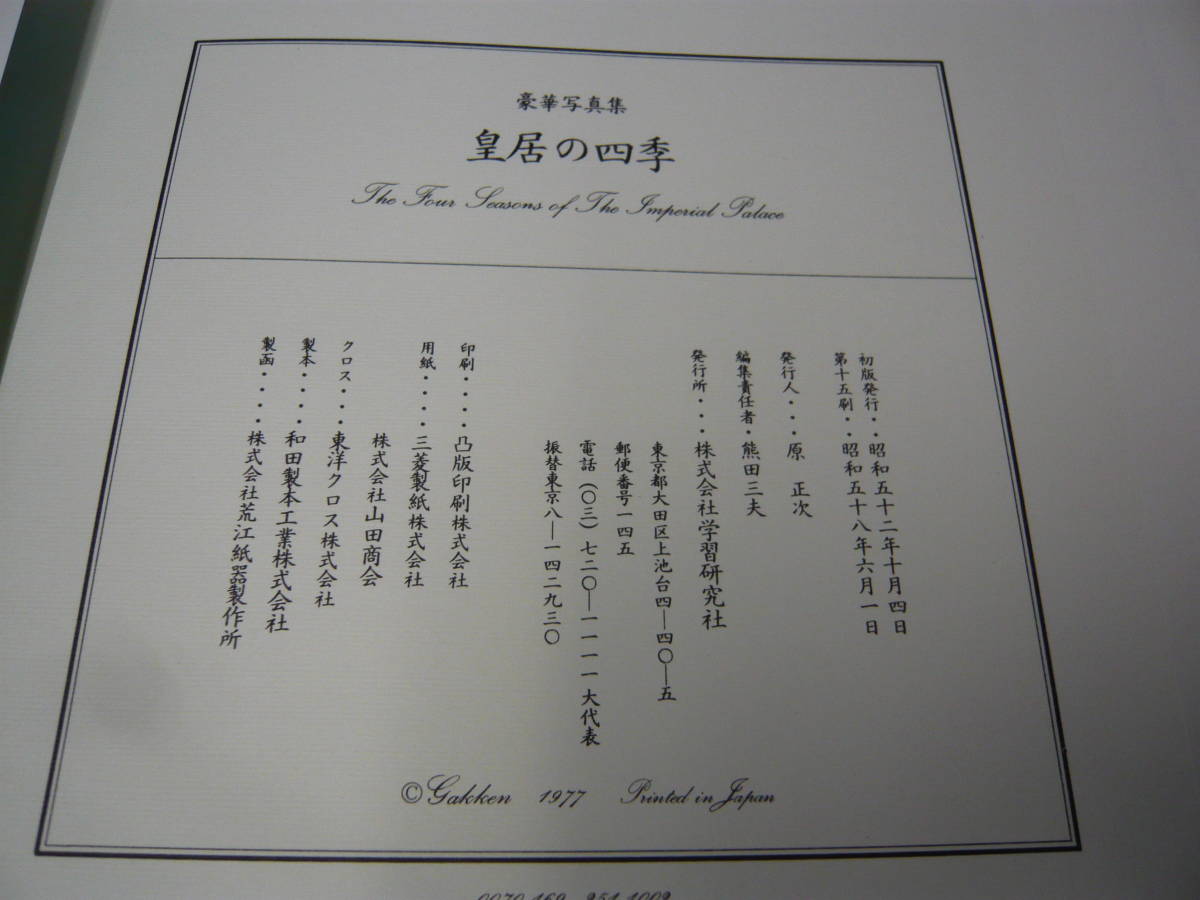 豪華写真集
皇居の四季
The Four Seasons of The Imperial Palace
初版発行・・昭和五十二年十月四日
第十五刷・・昭和五十八年六月一日
発行人・・・原 正次
編集責任者・熊田三夫
発行所・・・株式会社学習研究社
東京都大田区上池台四―四〇―五
郵便番号一四五
電話(〇三)七二〇―一一一一大代表
振替東京八―一四二九三〇
印刷・・・・凸版印刷株式会社
用紙・・・・三菱製紙株式会社
株式会社山田商会
クロス・・・東洋クロス株式会社
製本・・・・和田製本工業株式会社
製函・・・・株式会社荒江紙器製作所
©Gakken 1977 Printed in Japan